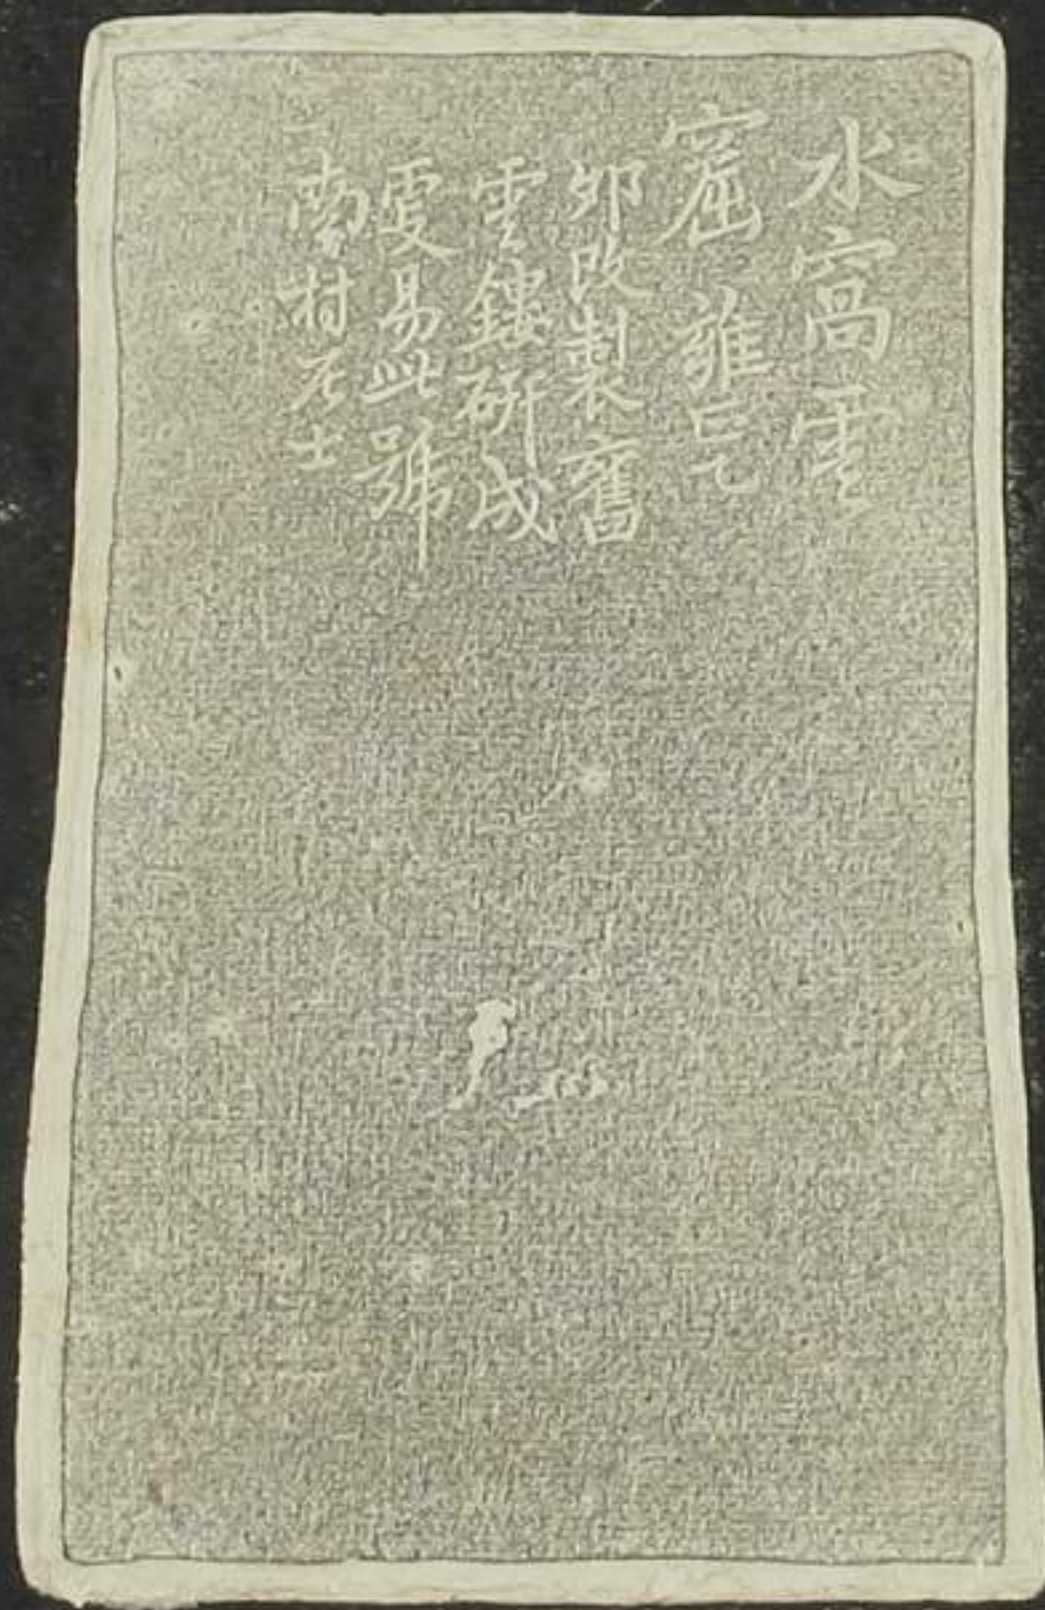 水窩雲
窟 雍正乙
卯改製舊
雲鏤研成
更易此號
南村居士